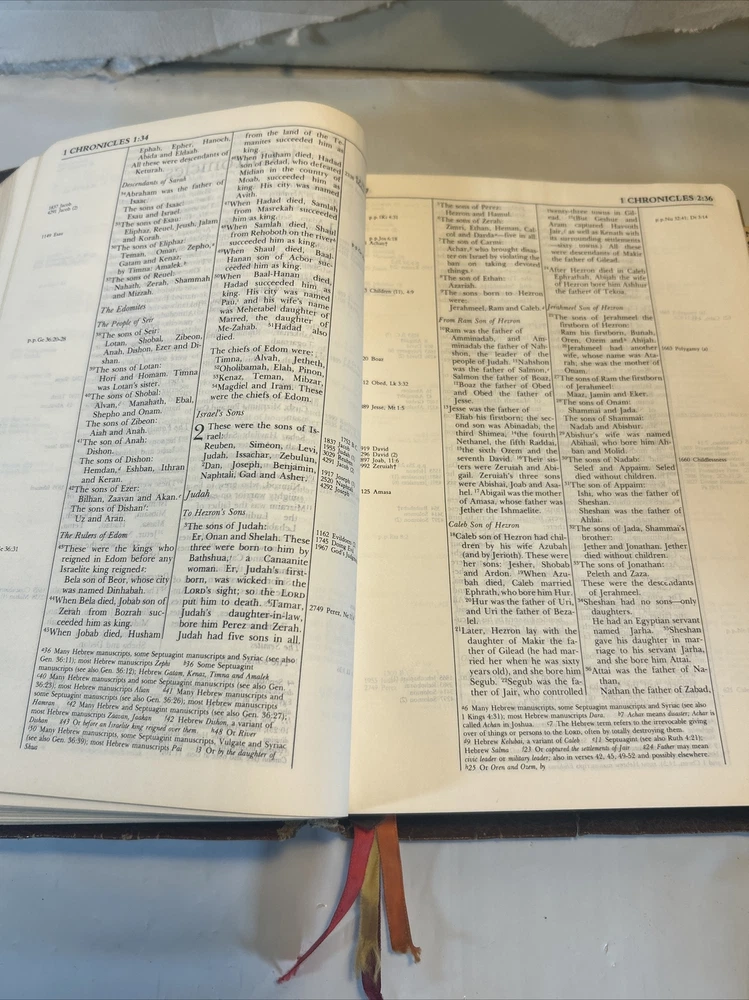 1 CHRONICLES 1:34
Ephah, Epher, Hanoch,
Abida and Eldaah.
All these were descendants of
Keturah.
Descendants of Sarah
34Abraham was the father of
Isaac.
The sons of Isaac:
Esau and Israel.
35The sons of Esau:
Eliphaz, Reuel, Jeush, Jalam
and Korah.
36The sons of Eliphaz:
Teman, Omar, Zepho,
Gatam and Kenaz;
by Timna: Amalek.
37The sons of Reuel:
Nahath, Zerah, Shammah
and Mizzah.
The Edomites
The People of Seir
38The sons of Seir:
Lotan, Shobal, Zibeon,
Anah, Dishon, Ezer and Di-
shan.
39The sons of Lotan:
Hori and Homam. Timna
was Lotan's sister.
40The sons of Shobal:
Alvan, Manahath, Ebal,
Shepho and Onam.
The sons of Zibeon:
Aiah and Anah.
41The son of Anah:
Dishon.
The sons of Dishon:
Hemdan, Eshban, Ithran
and Keran.
42The sons of Ezer:
Bilhan, Zaavan and Akan.
The sons of Dishan:
Uz and Aran.
The Rulers of Edom
43These were the kings who
reigned in Edom before any
Israelite king reigned:
Bela son of Beor, whose city
was named Dinhabah.
44When Bela died, Jobab son of
Zerah from Bozrah suc-
ceeded him as king.
45When Jobab died, Husham
from the land of the Te-
manites succeeded him as
king.
46When Husham died, Hadad
son of Bedad, who defeated
Midian in the country of
Moab, succeeded him as
king. His city was named
Avith.
47When Hadad died, Samlah
from Masrekah succeeded
him as king.
48When Samlah died, Shaul
from Rehoboth on the river
succeeded him as king.
49When Shaul died, Baal-
Hanan son of Acbor suc-
ceeded him as king.
50When Baal-Hanan died,
Hadad succeeded him as
king. His city was named
Pau, and his wife's name
was Mehetabel daughter of
Matred, the daughter of
Me-Zahab. 51Hadad also
died.
The chiefs of Edom were:
Timna, Alvah, Jetheth,
52Oholibamah, Elah, Pinon,
53Kenaz, Teman, Mibzar,
54Magdiel and Iram. These
were the chiefs of Edom.
Israel's Sons
2 These were the sons of Is-
rael:
Reuben, Simeon, Levi,
Judah, Issachar, Zebulun,
2Dan, Joseph, Benjamin,
Naphtali, Gad and Asher.
Judah
To Hezron's Sons
3The sons of Judah:
Er, Onan and Shelah. These
three were born to him by
Bathshua, a Canaanite
woman. Er, Judah's first-
born, was wicked in the
LORD's sight; so the LORD
put him to death. 4Tamar,
Judah's daughter-in-law,
bore him Perez and Zerah.
Judah had five sons in all.
a36 Many Hebrew manuscripts, some Septuagint manuscripts and Syriac (see also
Gen. 36:11); most Hebrew manuscripts Zephi b36 Some Septuagint
manuscripts (see also Gen. 36:12); Hebrew Gatam, Kenaz, Timna and Amalek
c40 Many Hebrew manuscripts and some Septuagint manuscripts (see also Gen.
36:23); most Hebrew manuscripts Alian d41 Many Hebrew manuscripts and
some Septuagint manuscripts (see also Gen. 36:26); most Hebrew manuscripts
Hamran e42 Many Hebrew and Septuagint manuscripts (see also Gen. 36:27);
most Hebrew manuscripts Zaavan, Jaakan f42 Hebrew Dishon, a variant of
Dishan g43 Or before an Israelite king reigned over them h48 Or River
i50 Many Hebrew manuscripts, some Septuagint manuscripts, Vulgate and Syriac
(see also Gen. 36:39); most Hebrew manuscripts Pai j3 Or by the daughter of
Shua
1837 Jacob
4291 Jacob (2)
1149 Esau
p.p. Ge 36:20-28
e 36:31
2749 Perez, Ne
1 CHRONICLES 2:36
5The sons of Perez:
Hezron and Hamul.
6The sons of Zerah:
Zimri, Ethan, Heman, Cal-
col and Darda—five in all.
7The son of Carmi:
Achar, who brought disas-
ter on Israel by violating the
ban on taking devoted
things.
8The son of Ethan:
Azariah.
9The sons born to Hezron
were:
Jerahmeel, Ram and Caleb.
From Ram Son of Hezron
10Ram was the father of
Amminadab, and Am-
minadab the father of Nah-
shon, the leader of the
people of Judah. 11Nahshon
was the father of Salmon,
Salmon the father of Boaz,
12Boaz the father of Obed
and Obed the father of
Jesse.
13Jesse was the father of
Eliab his firstborn; the sec-
ond son was Abinadab, the
third Shimea, 14the fourth
Nethanel, the fifth Raddai,
15the sixth Ozem and the
seventh David. 16Their sis-
ters were Zeruiah and Abi-
gail. Zeruiah's three sons
were Abishai, Joab and Asa-
hel. 17Abigail was the mother
of Amasa, whose father was
Jether the Ishmaelite.
Caleb Son of Hezron
18Caleb son of Hezron had chil-
dren by his wife Azubah
(and by Jerioth). These were
her sons: Jesher, Shobab
and Ardon. 19When Azu-
bah died, Caleb married
Ephrath, who bore him Hur.
20Hur was the father of Uri,
and Uri the father of Beza-
lel.
21Later, Hezron lay with the
daughter of Makir the fa-
ther of Gilead (he had mar-
ried her when he was sixty
years old), and she bore him
Segub. 22Segub was the fa-
ther of Jair, who controlled
twenty-three towns in Gil-
ead. 23(But Geshur and
Aram captured Havvoth
Jair, as well as Kenath with
its surrounding settlements
—sixty towns.) All these
were descendants of Makir
the father of Gilead.
24After Hezron died in Caleb
Ephrathah, Abijah the wife
of Hezron bore him Ashhur
the father of Tekoa.
Jerahmeel Son of Hezron
25The sons of Jerahmeel the
firstborn of Hezron:
Ram his firstborn, Bunah,
Oren, Ozem and Ahijah.
26Jerahmeel had another
wife, whose name was Ata-
rah; she was the mother of
Onam.
27The sons of Ram the firstborn
of Jerahmeel:
Maaz, Jamin and Eker.
28The sons of Onam:
Shammai and Jada.
The sons of Shammai:
Nadab and Abishur.
29Abishur's wife was named
Abihail, who bore him Ah-
ban and Molid.
30The sons of Nadab:
Seled and Appaim. Seled
died without children.
31The son of Appaim:
Ishi, who was the father of
Sheshan.
Sheshan was the father of
Ahlai.
32The sons of Jada, Shammai's
brother:
Jether and Jonathan. Jether
died without children.
33The sons of Jonathan:
Peleth and Zaza.
These were the descendants
of Jerahmeel.
34Sheshan had no sons—only
daughters.
He had an Egyptian servant
named Jarha. 35Sheshan
gave his daughter in mar-
riage to his servant Jarha,
and she bore him Attai.
36Attai was the father of Na-
than,
Nathan the father of Zabad,
a6 Many Hebrew manuscripts, some Septuagint manuscripts and Syriac (see also
1 Kings 4:31); most Hebrew manuscripts Dara b7 Achar means disaster; Achar is
called Achan in Joshua. c7 The Hebrew term refers to the irrevocable giving
over of things or persons to the LORD, often by totally destroying them.
d9 Hebrew Kelubai, a variant of Caleb e11 Septuagint (see also Ruth 4:21);
Hebrew Salma f23 Or captured the settlements of Jair g24 Father may mean
civic leader or military leader; also in verses 42, 45, 49-52 and possibly elsewhere.
h25 Or Oren and Ozem, by
1660 Childlessness